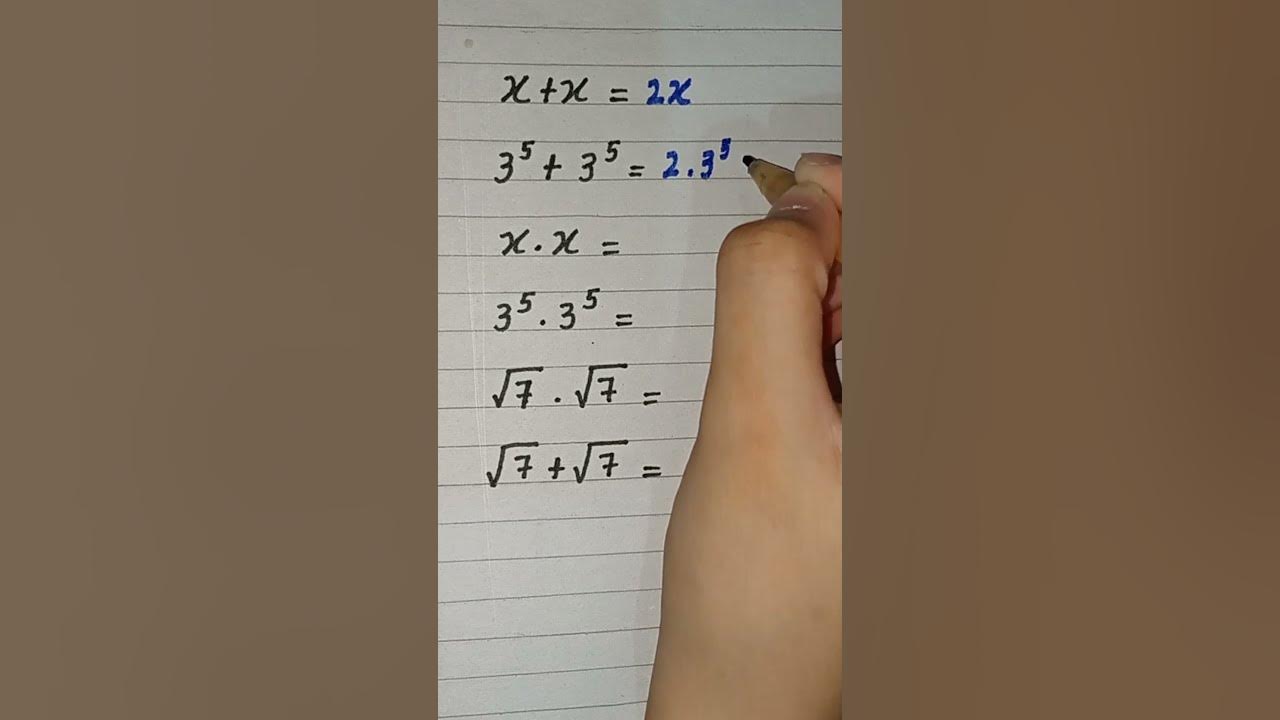 x + x = 2x
3⁵ + 3⁵ = 2 . 3⁵
x . x =
3⁵ . 3⁵ =
√7 . √7 =
√7 + √7 =